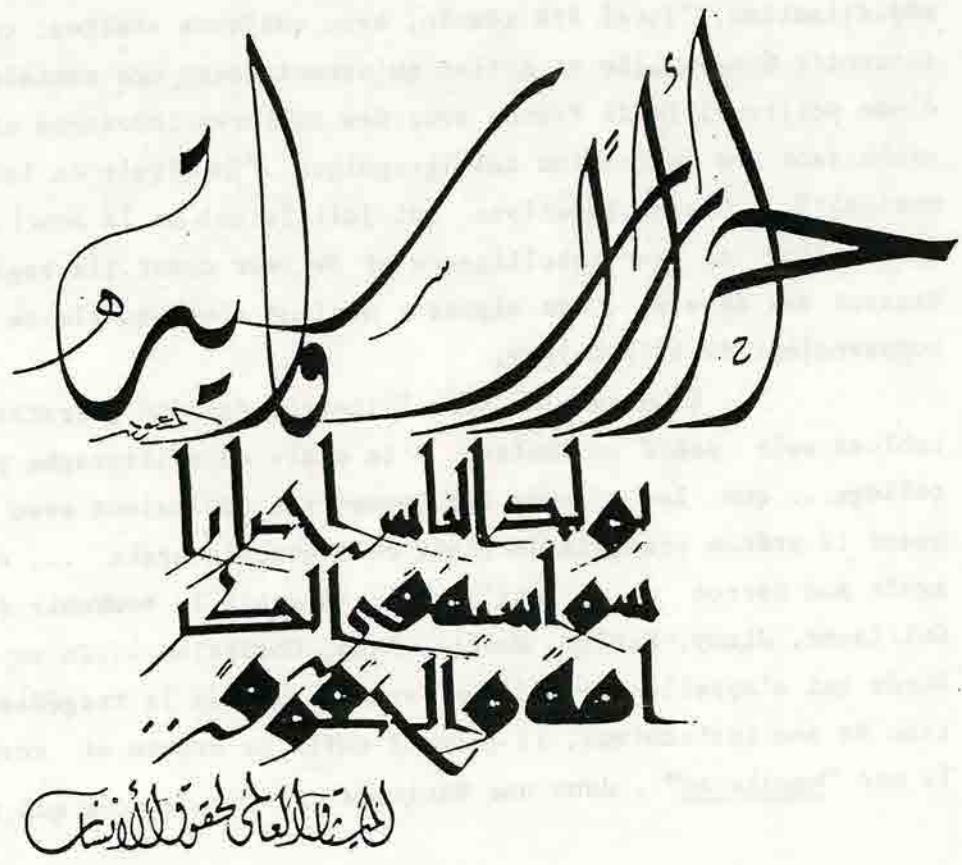 أحراراً سواسية
يولد الناس احرارا
سواسيه في الكر
امه والحقوق
الميثاق العالمي لحقوق الأنسان